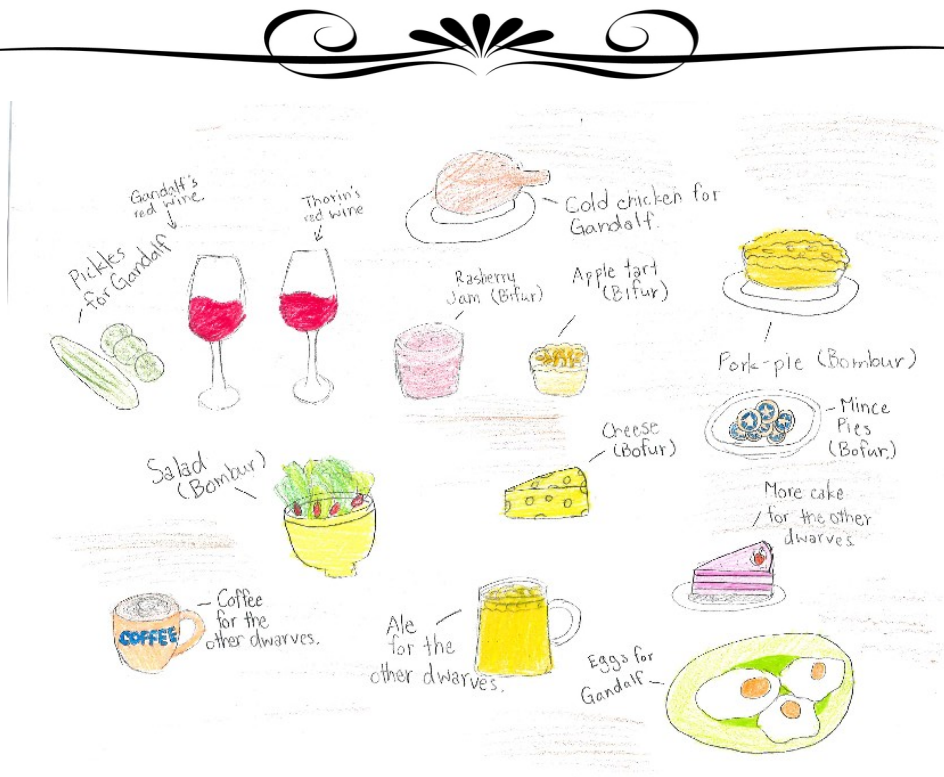 Gandalf's
red wine
Thorin's
red wine
Cold chicken for
Gandalf.
Pickles
for Gandalf
Rasberry
Jam (Bifur)
Apple tart
(Bifur)
Pork-pie (Bombur)
Mince
Pies
(Bofur)
Cheese
(Bofur)
Salad
(Bombur)
More cake
for the other
dwarves.
Coffee
for the
other dwarves.
COFFEE
Ale
for the
other dwarves.
Eggs for
Gandalf